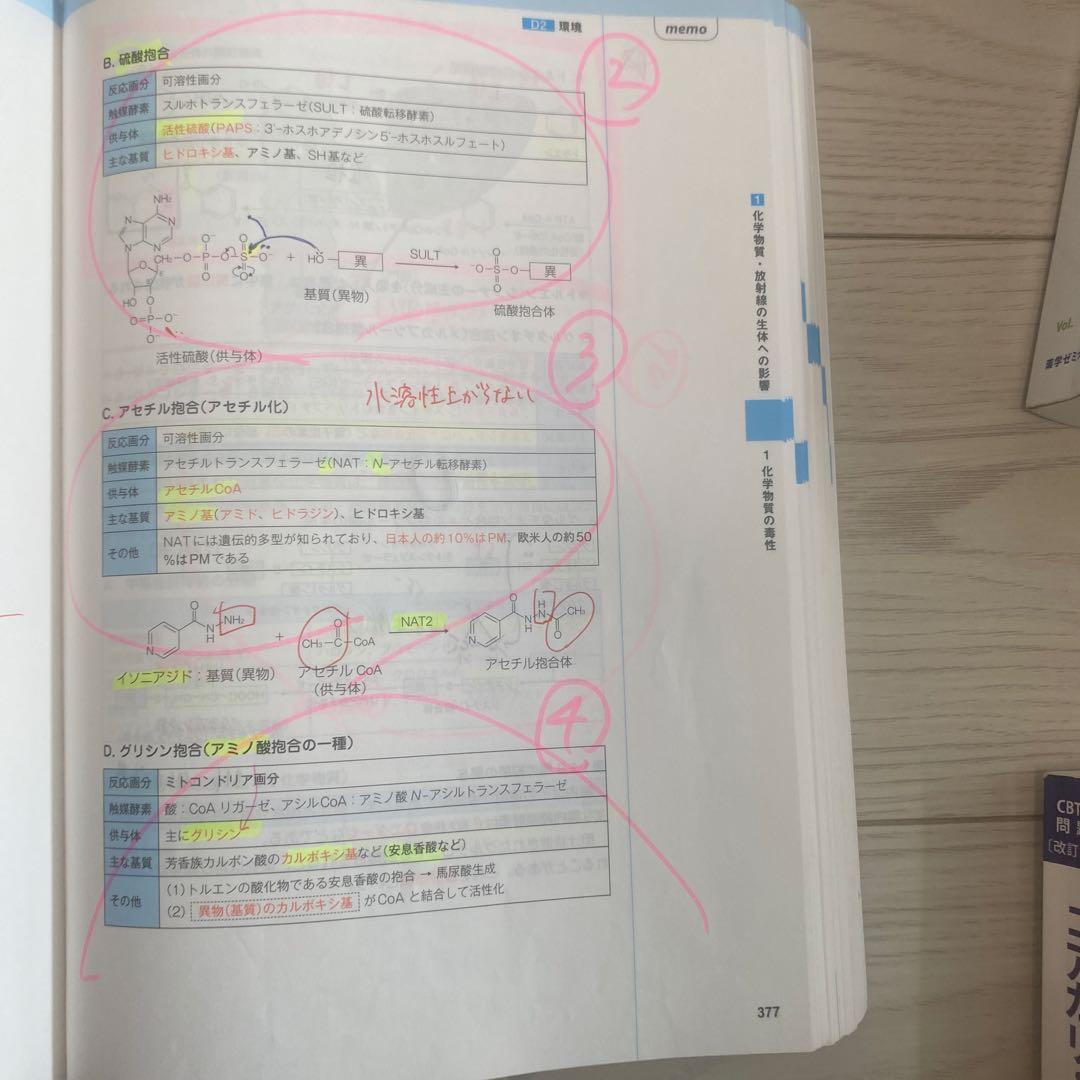 D2 環境
memo
②
B. 硫酸抱合
反応画分 可溶性画分
触媒酵素 スルホトランスフェラーゼ(SULT：硫酸転移酵素)
供与体 活性硫酸(PAPS：3'-ホスホアデノシン5'-ホスホスルフェート)
主な基質 ヒドロキシ基、アミノ基、SH基など
NH₂
HO 異
SULT
異
基質(異物)
硫酸抱合体
活性硫酸(供与体)
③
水溶性上がらない
C. アセチル抱合(アセチル化)
反応画分 可溶性画分
触媒酵素 アセチルトランスフェラーゼ(NAT：N-アセチル転移酵素)
供与体 アセチルCoA
主な基質 アミノ基(アミド、ヒドラジン)、ヒドロキシ基
その他 NATには遺伝的多型が知られており、日本人の約10%はPM、欧米人の約50
%はPMである
NH₂
CH₃-C-CoA
NAT2
CH₃
イソニアジド：基質(異物)
アセチルCoA
(供与体)
アセチル抱合体
④
D. グリシン抱合(アミノ酸抱合の一種)
反応画分 ミトコンドリア画分
触媒酵素 酸：CoAリガーゼ、アシルCoA：アミノ酸N-アシルトランスフェラーゼ
供与体 主にグリシン
主な基質 芳香族カルボン酸のカルボキシ基など(安息香酸など)
その他 (1)トルエンの酸化物である安息香酸の抱合 → 馬尿酸生成
(2) 異物(基質)のカルボキシ基 がCoAと結合して活性化
1 化学物質・放射線の生体への影響
1 化学物質の毒性
377
Vol.
薬学ゼミ
CBT
[改訂